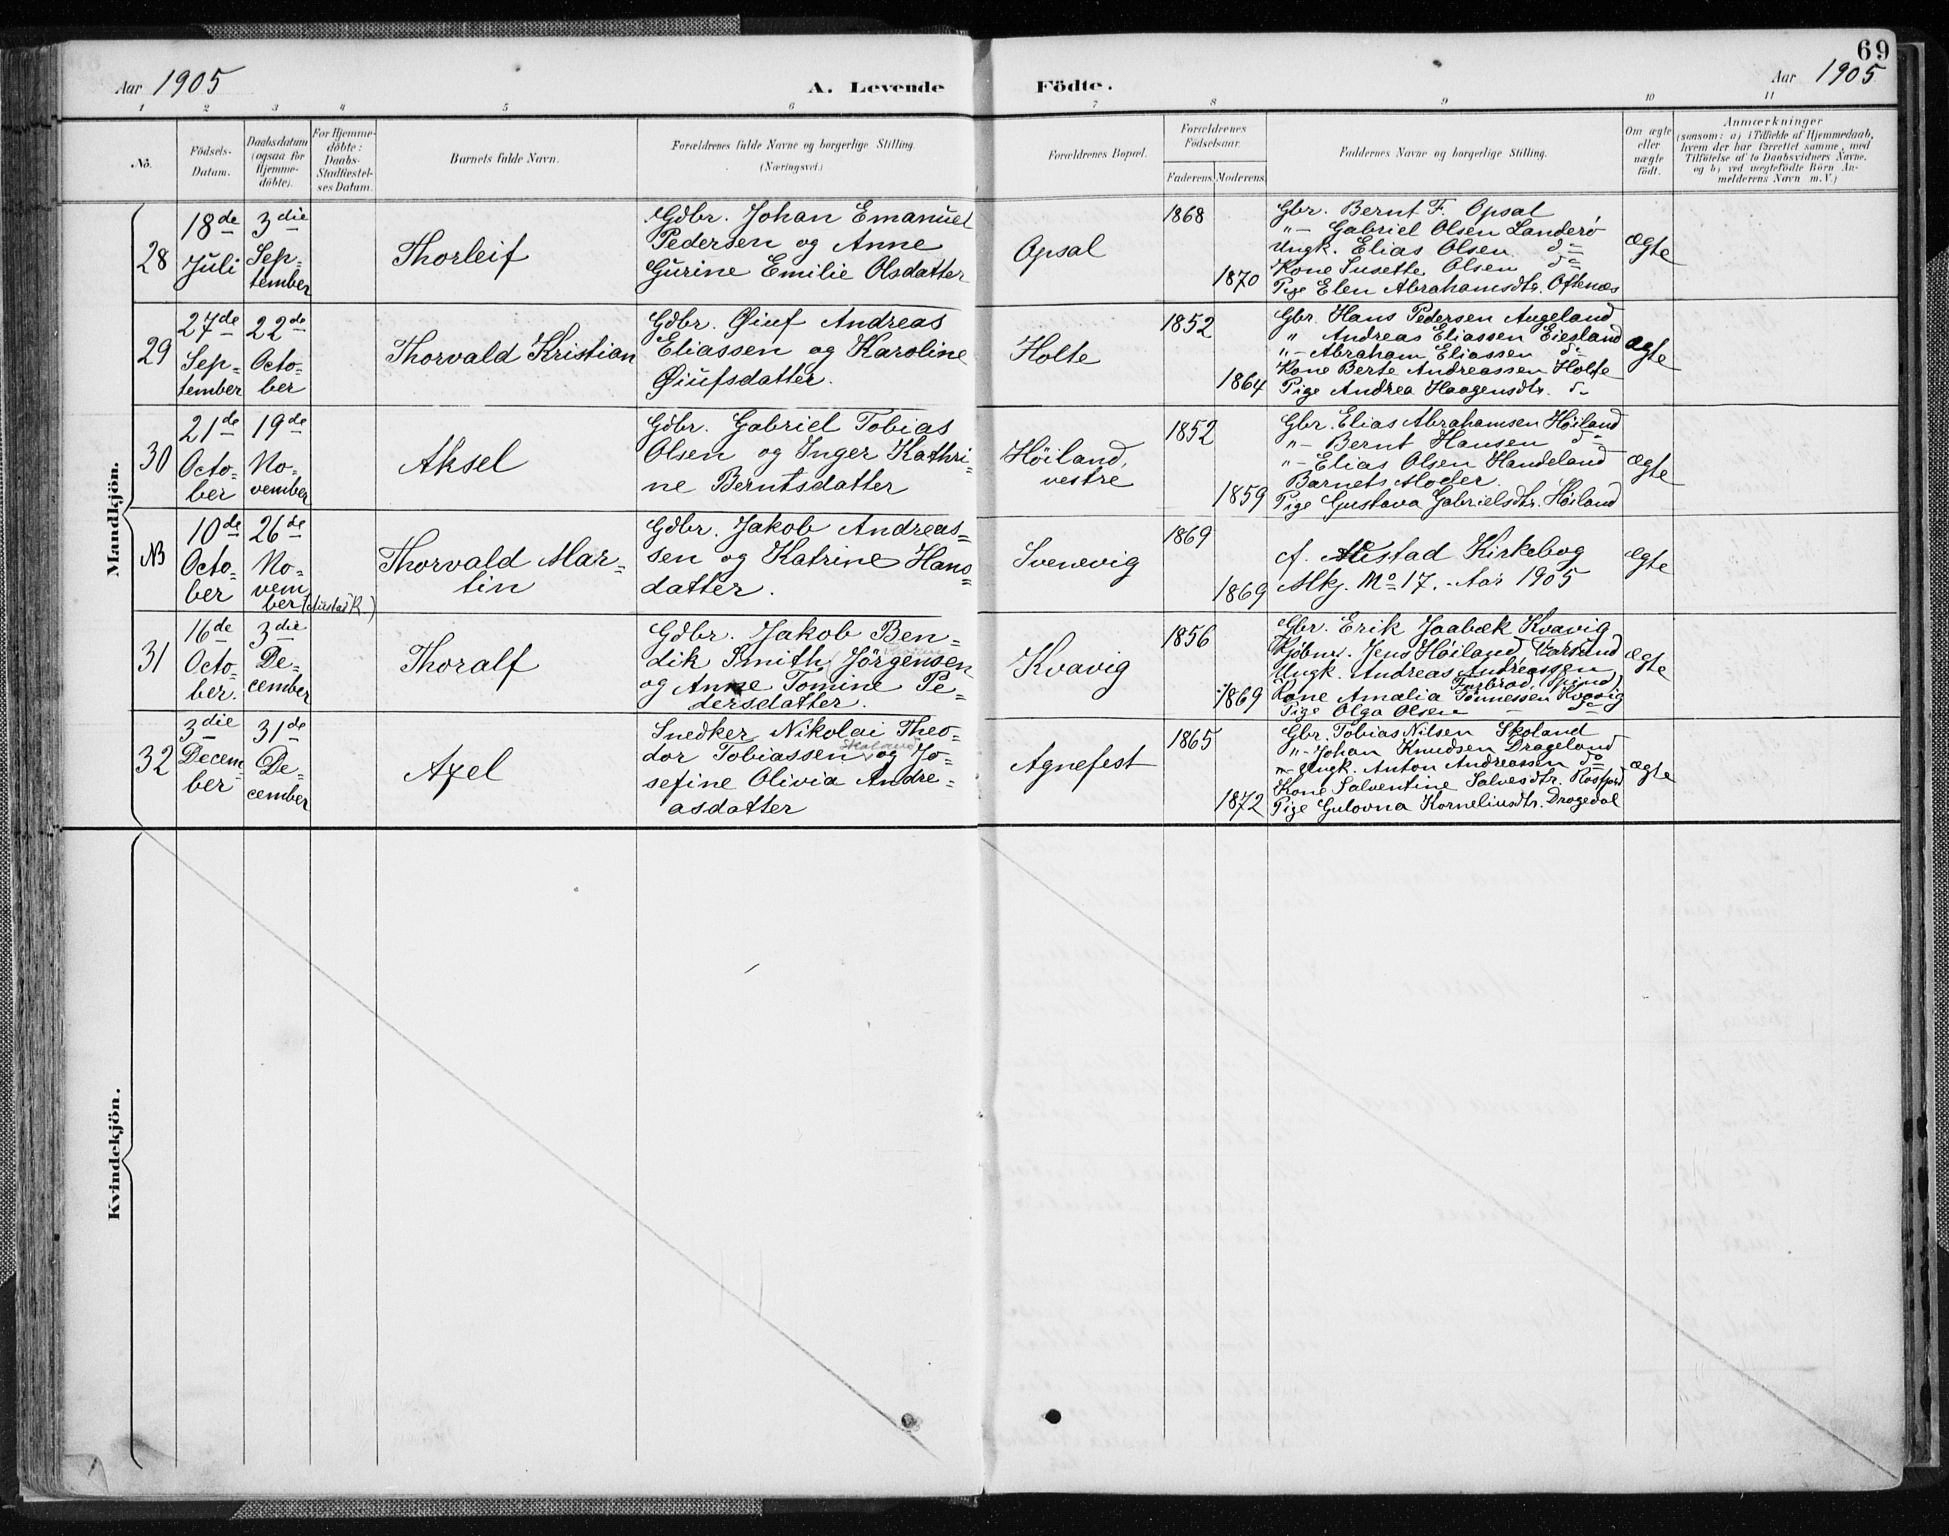 69
Aar 1905 A. Levende Födte. Aar 1905
1 2 3 4 5 6 7 8 9 10 11
No.
Födsels-
Datum.
Daabsdatum
(ogsaa for
Hjemme-
döbte).
For Hjemme-
döbte:
Daabs-
Stadfæstel-
ses Datum.
Barnets fulde Navn.
Forældrenes fulde Navne og borgerlige Stilling.
(Næringsvei.)
Forældrenes Bopæl.
Forældrenes
Födselsaar.
Faderens. Moderens.
Faddernes Navne og borgerlige Stilling.
Om ægte
eller
uægte
födt.
Anmærkninger
(saasom: a) i Tilfælde af Hjemmedaab,
hvem der har forrettet samme, med
Tilföielse af to Daabsvidners Navne,
og b) ved uægtefödte Börn An-
melderens Navn m. V.)
Mandkjön.
28
18de
Juli
3die
Sep-
tember
Thorleif
Gdbr. Johan Emanuel
Pedersen og Anne
Gurine Emilie Olsdatter
Opsal
1868
1870
Gbr. Bernt F. Opsal
"- Gabriel Olsen Landerö
Ungk. Elias Olsen do
Kone Susette Olsen do
Pige Elen Abrahamsdtr. Oftenæs
ægte
29
27de
Sep-
tember
22de
Octo-
ber
Thorvald Kristian
Gdbr. Øiuf Andreas
Eliassen og Karoline
Øiufsdatter.
Holte
1852
1864
Gbr. Hans Pedersen Augeland
" Andreas Eliassen Eiesland
"- Abraham Eliassen do
Kone Berte Andreassen Holte
Pige Andrea Haagensdtr. do
ægte
30
21de
Octo-
ber
19de
No-
vember
Aksel
Gdbr. Gabriel Tobias
Olsen og Inger Kathri-
ne Berntsdatter
Höiland,
vestre
1852
1859
Gbr. Elias Abrahamsen Höiland
"- Bernt Hansen do
"- Elias Olsen Handeland
Barnets Moder.
Pige Gustava Gabrielsdtr. Höiland
ægte
NB
10de
Octo-
ber
26de
No-
vem
ber
Thorvald Mar-
tin
Gdbr. Jakob Andreas-
sen og Katrine Hans-
datter.
Svenevig
1869
1869
Kirkebog
Mkj. No 17. Aar 1905
ægte
31
16de
Octo-
ber
3die
De-
cember
Thoralf
Gdbr. Jakob Ben-
dik Smith Jörgensen
og Anne Tomine Pe-
dersdatter.
Kvavig
1856
1869
Gbr. Erik Jaabæk Kvavig
Kjöbm. Jens Höiland
Ungk. Andreas Andreassen
Kone Amalia Tönnessen Kvavig
Pige Olga Olsen do
ægte
32
3die
Decem-
ber
31de
De-
cember
Axel
Snedker Nikolai Theo-
dor Tobiassen Skoland og Jo-
sefine Olivia Andre-
asdatter
Agnefest
1865
1872
Gbr. Tobias Nilsen Skoland
"- Johan Knudsen Drageland
Ungk. Anton Andreassen do
Kone Salventine Salvesdtr. Rosfjord
Pige Gulovna Korneliusdtr. Dragedal
ægte
Kvindekjön.